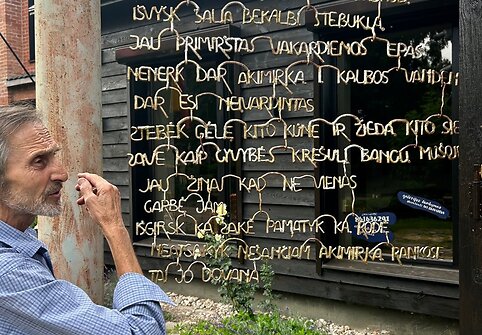 IŠVYSK ŠALIA BEKALBĮ STEBUKLĄ
JAU PRIMIRŠTAS VAKARDIENOS EPAS
NENERK DAR AKIMIRKA Į KALBOS VANDENĮ
DAR ESI NEĮVARDINTAS
STEBĖK GĖLĘ KITO KŪNE IR ŽIEDĄ KITO SIE
KAIP GYVYBĖS KREŠULĮ BANGŲ MŪŠOJE
JAU ŽINAI KAD NE VIENAS
GARBĖ JAM
IŠGIRSK KĄ SAKĖ PAMATYK KĄ RODĖ
NEATSAKYK NEŠANČIAM AKIMIRKĄ RANKOSE
TAI JO DOVANA